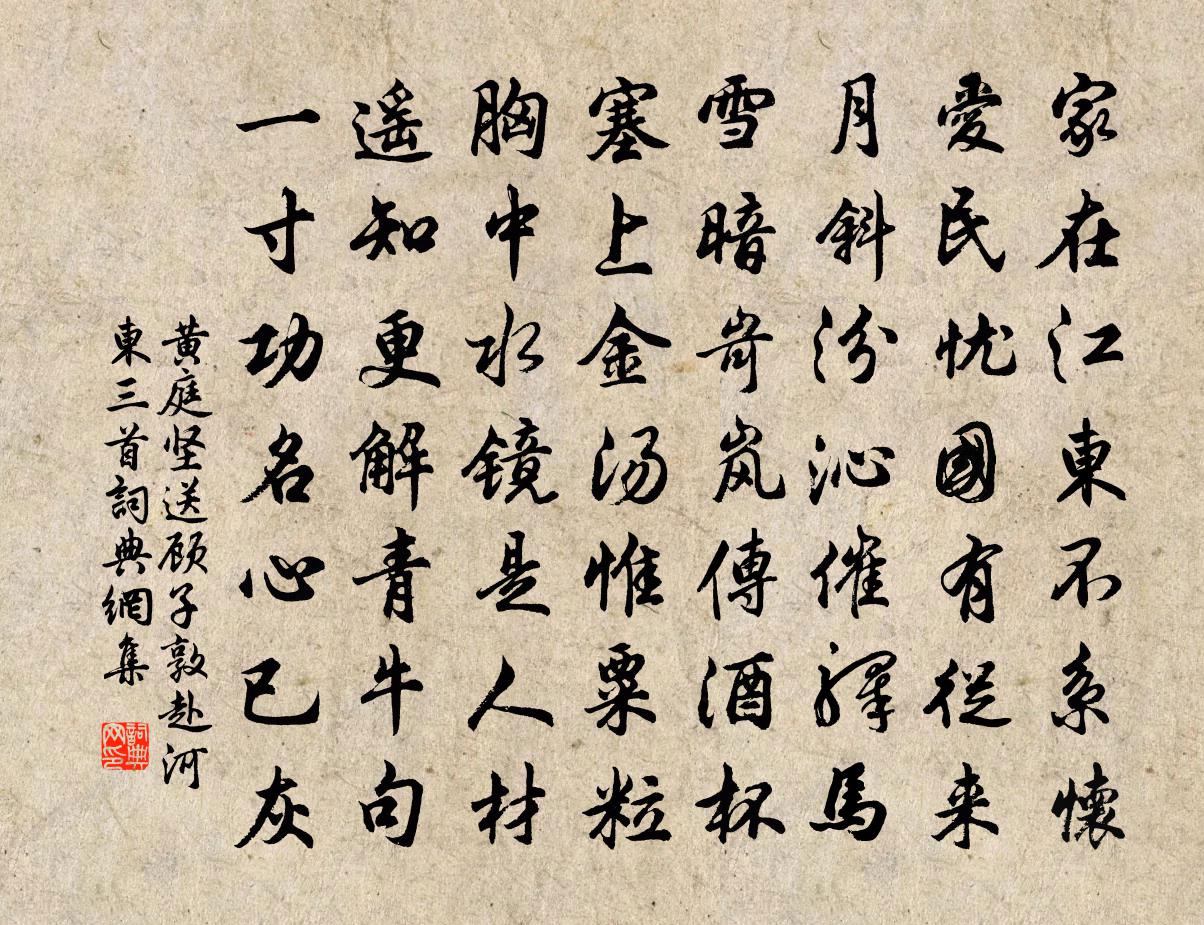 家在江東不系懷
愛民忧國有從来
月斜汾沁催驛馬
雪暗岢岚傳酒杯
塞上金汤惟粟粒
胸中水镜是人材
遥知更解青牛句
一寸功名心已灰
黄庭坚送顾子敦赴河
東三首詞典網集
詞典
网印